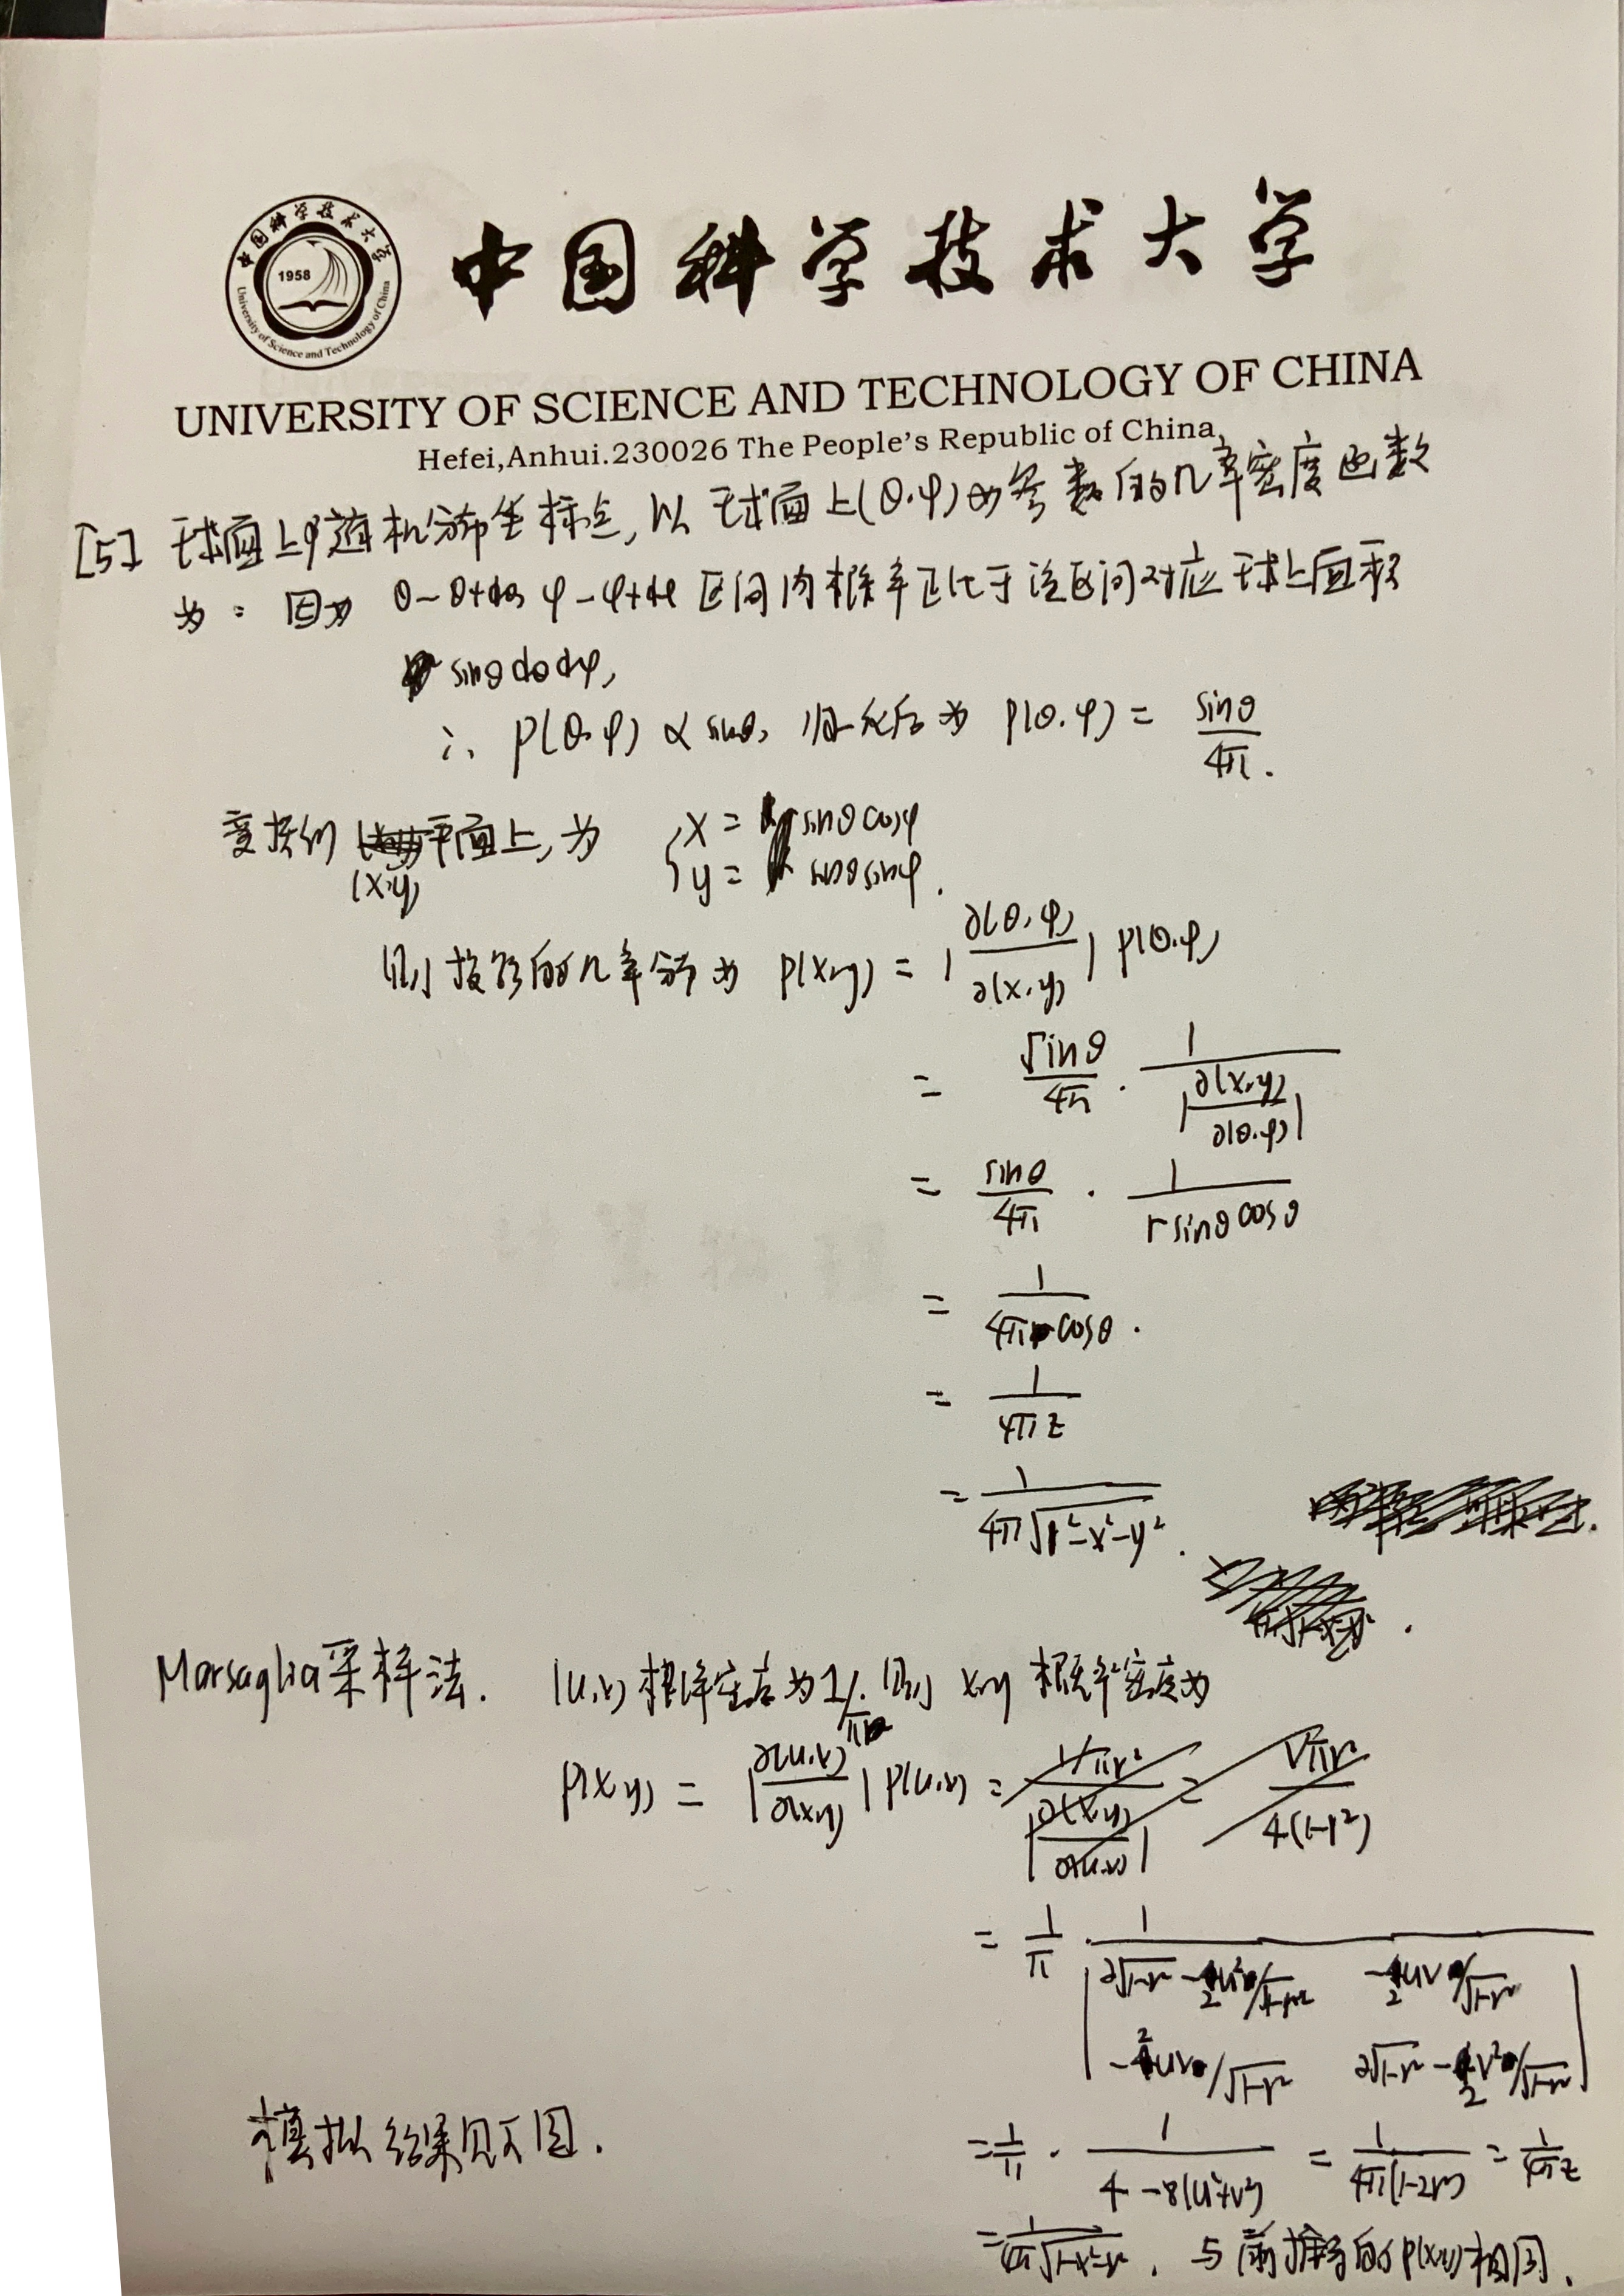 中国科学技术大学
1958
University of Science and Technology of China
中国科学技术大学
UNIVERSITY OF SCIENCE AND TECHNOLOGY OF CHINA
Hefei,Anhui.230026 The People's Republic of China
[5] 球面上随机分布坐标点,以球面上(θ.φ)为参数的几率密度函数
为: 因为 θ~θ+dθ, φ~φ+dφ 区间内概率正比于该区间对应球上面积
sinθdθdφ,
∴ p(θ.φ) ∝ sinθ, 归一化后为 p(θ.φ) = sinθ/4π.
变换到 (x.y) 平面上,为 { x = sinθcosφ
y = sinθsinφ.
则投影的几率分布为 p(x,y) = |∂(θ,φ)/∂(x,y)| p(θ.φ)
= sinθ/4π · 1/|∂(x,y)/∂(θ.φ)|
= sinθ/4π · 1/(r sinθcosθ)
= 1/(4πcosθ).
= 1/(4πz)
= 1/(4π√(1²-x²-y²)).
Marsaglia采样法. (u,v) 概率密度为1/π. 则 x,y 概率密度为
p(x,y) = |∂(u,v)/∂(x,y)| p(u,v)
= 1/π · 1/| 2√(1-r²) - 2u²/√(1-r²) -2uv/√(1-r²)
-2uv/√(1-r²) 2√(1-r²) - 2v²/√(1-r²) |
模拟结果见下图.
= 1/π · 1/(4-8(u²+v²)) = 1/(4π(1-2r²)) = 1/(4πz)
= 1/(4π√(1-x²-y²)). 与前推导的p(x,y)相同.